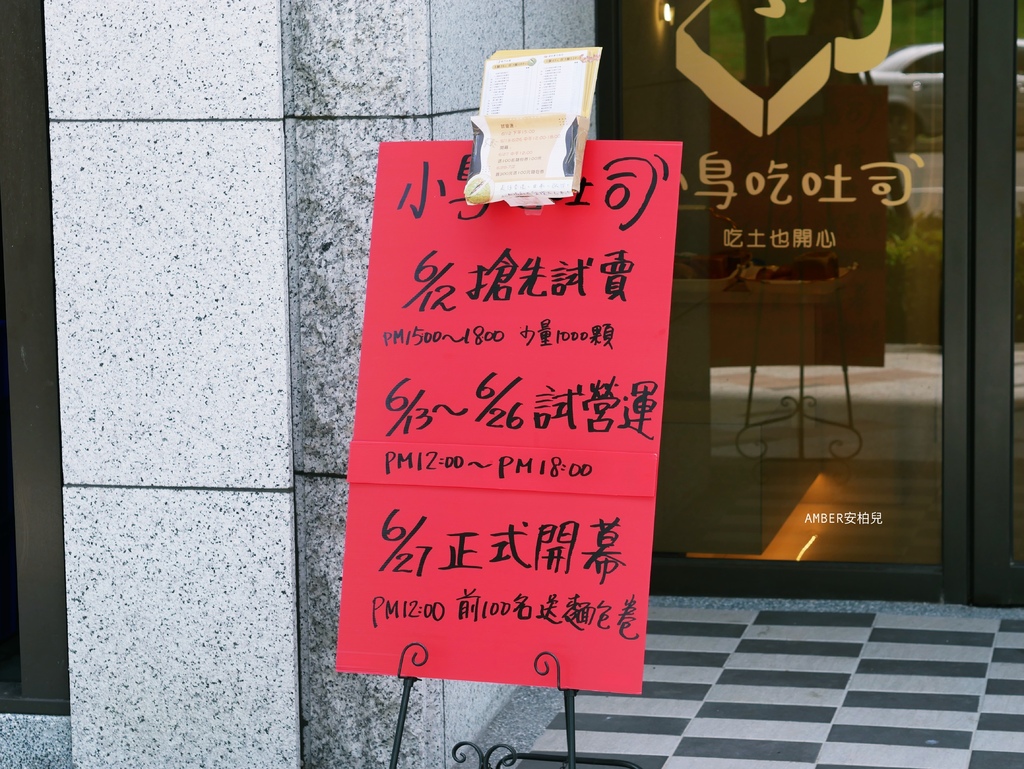 小鳥吃吐司
6/12 搶先試賣
PM1500～1800 少量1000顆
6/13～6/26 試營運
PM12:00～PM18:00
6/27 正式開幕
PM12:00 前100名送麵包卷
小鳥吃吐司
吃土也開心
AMBER安柏兒